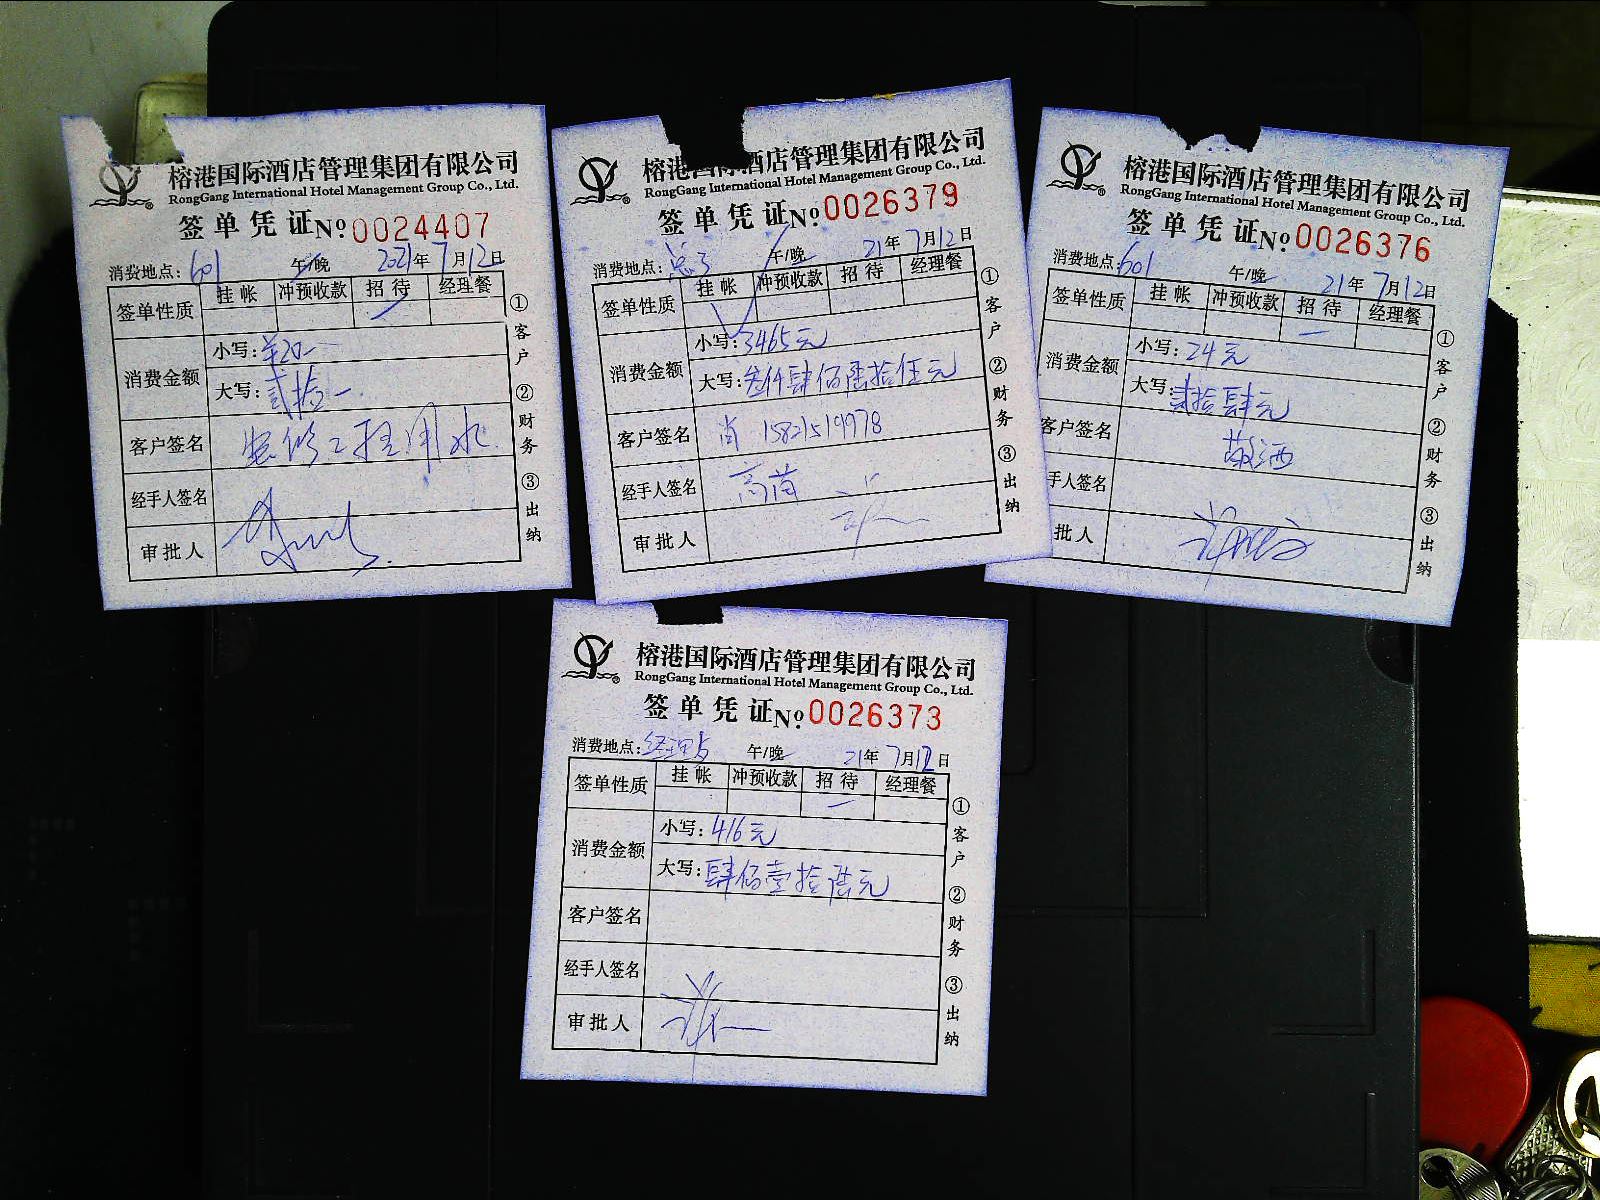 榕港国际酒店管理集团有限公司
RongGang International Hotel Management Group Co., Ltd.
签单凭证№0024407
消费地点:601 午/晚 2021年7月12日
签单性质 挂帐 冲预收款 招待 经理餐
消费金额
小写:¥20-
大写:贰拾-
客户签名 装修工程用水
经手人签名
审批人
①客户 ②财务 ③出纳
榕港国际酒店管理集团有限公司
RongGang International Hotel Management Group Co., Ltd.
签单凭证№0026379
消费地点: 午/晚 21年7月12日
签单性质 挂帐 冲预收款 招待 经理餐
消费金额
小写:3465元
大写:叁仟肆佰陆拾伍元
客户签名 肖 15821519978
经手人签名
审批人
①客户 ②财务 ③出纳
榕港国际酒店管理集团有限公司
RongGang International Hotel Management Group Co., Ltd.
签单凭证№0026376
消费地点:601 午/晚 21年7月12日
签单性质 挂帐 冲预收款 招待 经理餐
消费金额
小写:24元
大写:贰拾肆元
客户签名 敬酒
手人签名
批人
①客户 ②财务 ③出纳
榕港国际酒店管理集团有限公司
RongGang International Hotel Management Group Co., Ltd.
签单凭证№0026373
消费地点: 午/晚 21年7月12日
签单性质 挂帐 冲预收款 招待 经理餐
消费金额
小写:416元
大写:肆佰壹拾陆元
客户签名
经手人签名
审批人
①客户 ②财务 ③出纳